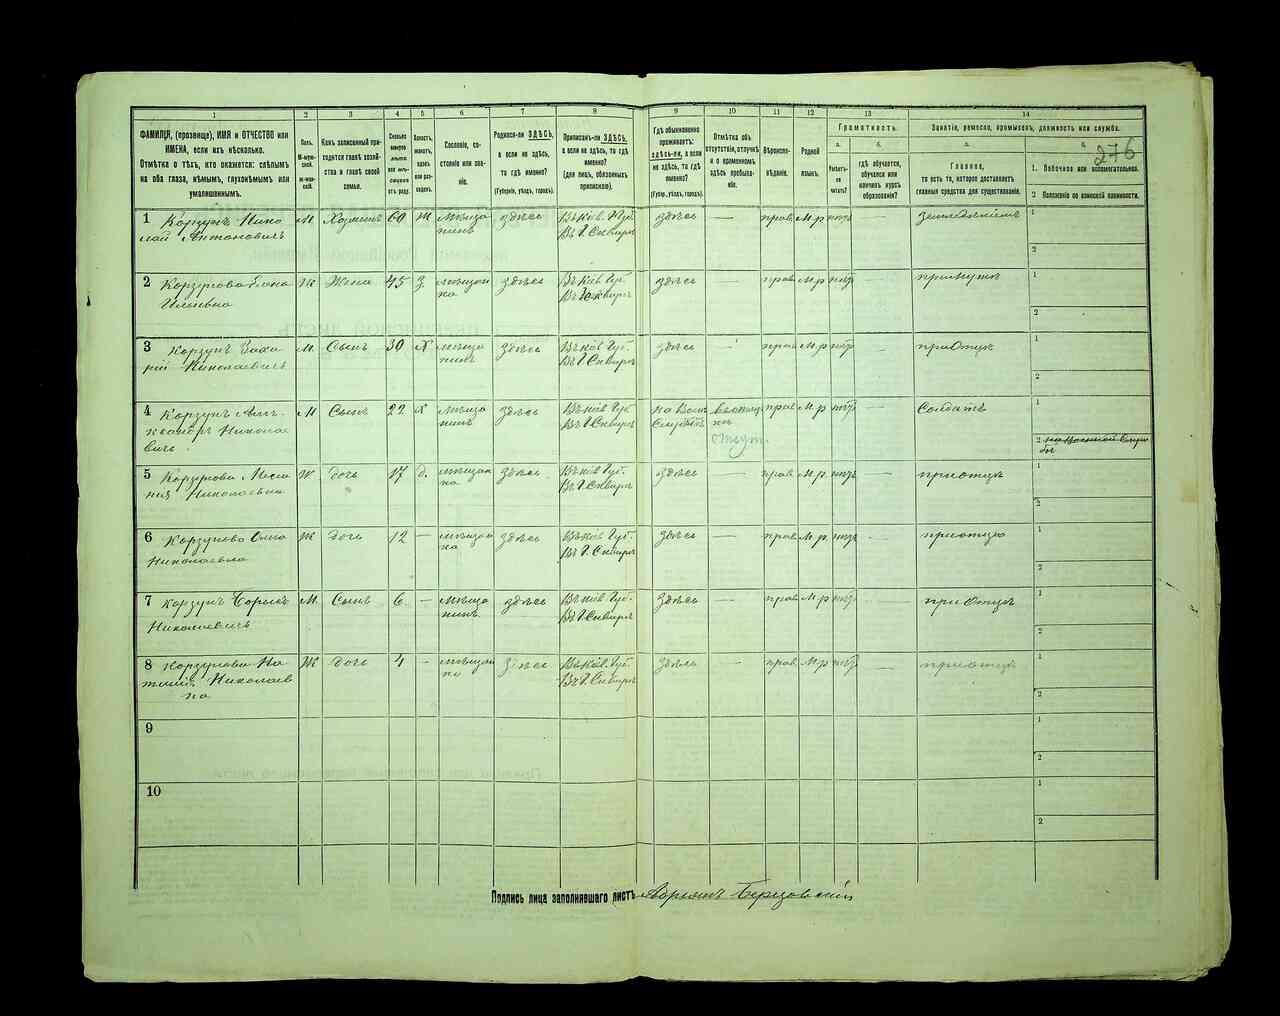 1 2 3 4 5 6 7 8 9 10 11 12 13 14
ФАМИЛІЯ, (прозвище), ИМЯ и ОТЧЕСТВО или
ИМЕНА, если ихъ нѣсколько.
Отмѣтка о тѣхъ, кто окажется: слѣпымъ
на оба глаза, нѣмымъ, глухонѣмымъ или
умалишеннымъ.
Полъ.
М-муж-
ской.
Ж-жен-
скій.
Какъ записанный при-
ходится главѣ хозяй-
ства и главѣ своей
семьи.
Сколько
минуло
лѣтъ
или мѣ-
сяцевъ
отъ роду.
Холостъ,
женатъ,
вдовъ
или раз-
веденъ.
Сословіе, со-
стояніе или зва-
ніе.
Родился-ли ЗДѢСЬ,
а если не здѣсь,
то гдѣ именно?
(Губернія, уѣздъ, городъ).
Приписанъ-ли ЗДѢСЬ,
а если не здѣсь, то гдѣ
именно?
(Для лицъ, обязанныхъ
припискою).
Гдѣ обыкновенно
проживаетъ:
здѣсь-ли, а если
не здѣсь, то гдѣ
именно?
(Губер., уѣздъ, городъ).
Отмѣтка объ
отсутствіи, отлучкѣ
и о временномъ
здѣсь пребыва-
ніи.
Вѣроиспо-
вѣданіе.
Родной
языкъ.
Грамотность.
а.
Умѣетъ-
ли
читать?
б.
гдѣ обучается,
обучался или
кончилъ курсъ
образованія?
Занятіе, ремесло, промыселъ, должность или служба.
а.
Главное,
то есть то, которое доставляетъ
главныя средства для существованія.
б.
276
1. Побочное или вспомогательное.
2 Положеніе по воинской повинности.
1 Корзунъ Нико
лай Антоновичъ
М Хозяинъ 60 Ж Мѣща
нинъ
здѣсь Въ Кіев. Губ.
Въ Г. Сквирѣ
здѣсь — прав М р нѣтъ — земледѣліемъ
1
2
2 Корзунова
Ильивна
Ж Жена 45 З мѣщан
ка
здѣсь Въ Кіев Губ
Въ Г. Сквирѣ
здѣсь — прав М р нѣтъ
1
2
3 Корзунъ Заха
рій Николаевичъ
М. Сынъ 30 Х мѣща
нинъ
здѣсь Въ Кіев. Губ.
Въ Г. Сквирѣ
здѣсь — прав М р нѣтъ — при Отцѣ
1
2
4 Корзунъ Але
ксандръ Николае
вичъ
М Сынъ 22 Х мѣща
нинъ
здѣсь Въ Кіев Губ
Въ Г. Сквирѣ
на Воен
Службѣ
отсут.
прав М р нѣтъ — Солдатъ
1
2 на Военной Служ
бѣ
5 Корзунова
Николаевна
Ж дочь 17 д. мѣщан
ка
здѣсь Въ Кіев. Губ.
Въ Г. Сквирѣ
здѣсь — прав М р нѣтъ — при отцѣ
1
2
6 Корзуново Олна
Николаевна
Ж дочь 12 — мѣщан
ка
здѣсь Въ Кіев Губ.
Въ Г. Сквирѣ
здѣсь — прав М р нѣтъ — при отцѣ
1
2
7 Корзунъ Борысъ
Николаевичъ
М. Сынъ 6 — Мѣща
нинъ
здѣсь Въ Кіев Губ.
Въ Г. Сквирѣ
здѣсь — прав М р нѣтъ — при Отцѣ
1
2
8 Корзунова На
талія Николаев
на
Ж дочь 4 — мѣщан
ка
здѣсь Въ Кіев. Губ.
Въ Г. Сквирѣ
здѣсь — прав М р нѣтъ — при отцѣ
1
2
9
1
2
10
1
2
Подпись лица заполнявшаго листъ Абрамъ Березовскій